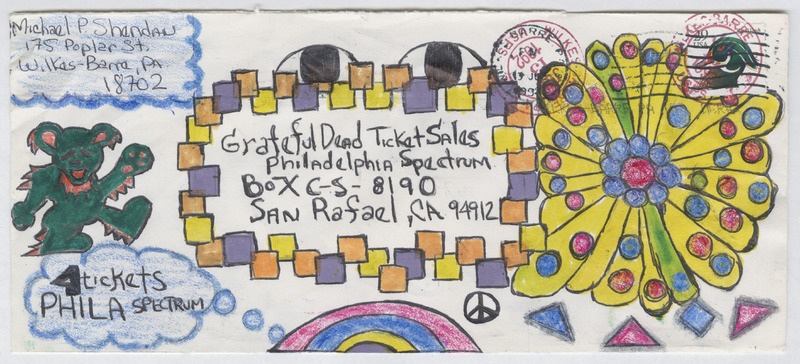 Michael P. Sheridan
175 Poplar St.
Wilkes-Barre, PA
18702
Grateful Dead Ticket Sales
Philadelphia Spectrum
Box C-S-8190
San Rafael, CA 94912
4 tickets
PHILA SPECTRUM